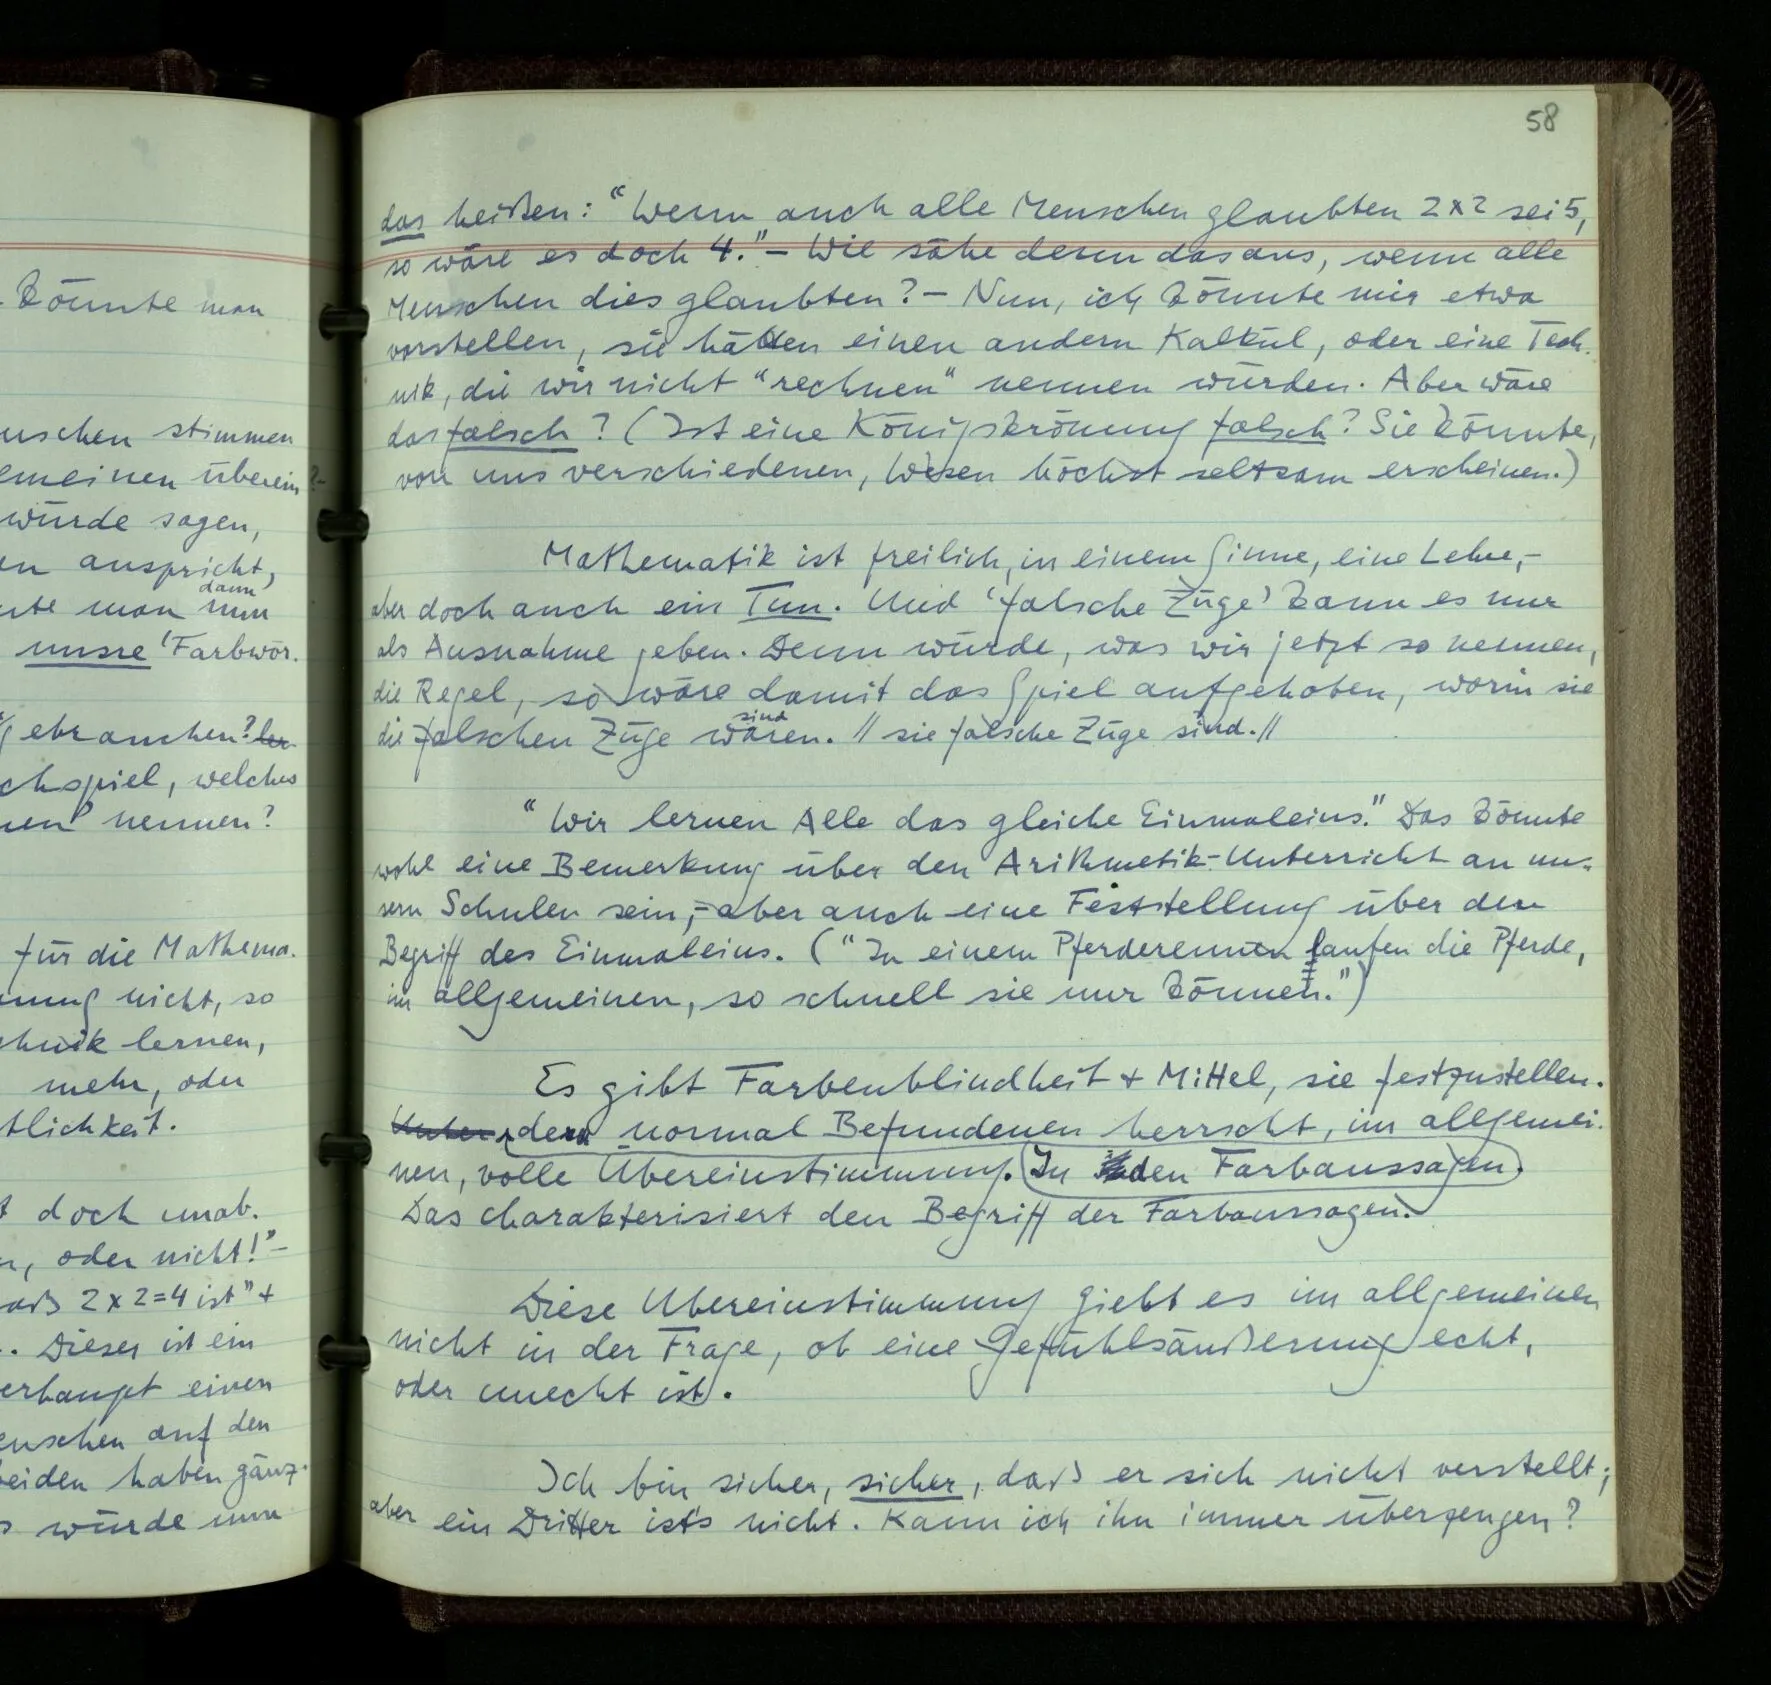 könnte man
nschen stimmen
emeinen überein?-
würde sagen,
en anspricht,
dann
nte man nun
unsre 'Farbwör-
gebrauchen? ler
chspiel, welches
nen' nennen?
für die Mathema-
nung nicht, so
chnik lernen,
mehr, oder
tlichkeit.
t doch unab-
n, oder nicht!"-
aß 2x2=4 ist" +
. Dieser ist ein
erhaupt einen
enschen auf den
beiden haben gänz-
s würde nun
58
das heißen: "Wenn auch alle Menschen glaubten 2x2 sei 5,
so wäre es doch 4." - Wie sähe denn das aus, wenn alle
Menschen dies glaubten? - Nun, ich könnte mir etwa
vorstellen, sie hätten einen andern Kalkül, oder eine Tech-
nik, die wir nicht "rechnen" nennen würden. Aber wäre
das falsch? (Ist eine Königskrönung falsch? Sie könnte,
von uns verschiedenen, Wesen höchst seltsam erscheinen.)
Mathematik ist freilich, in einem Sinne, eine Lehre, -
aber doch auch ein Tun. Und 'falsche Züge' kann es nur
als Ausnahme geben. Denn würde, was wir jetzt so nennen,
die Regel, so wäre damit das Spiel aufgehoben, worin sie
sind
die falschen Züge wären. // sie falsche Züge sind. //
"Wir lernen Alle das gleiche Einmaleins." Das könnte
wohl eine Bemerkung über den Arithmetik-Unterricht an un-
sern Schulen sein, - aber auch eine Feststellung über den
Begriff des Einmaleins. ("In einem Pferderennen laufen die Pferde,
im allgemeinen, so schnell sie nur können.")
Es gibt Farbenblindheit + Mittel, sie festzustellen.
Unter den normal Befundenen herrscht, im allgemei-
nen, volle Übereinstimmung. In den Farbaussagen.
Das charakterisiert den Begriff der Farbaussagen.
Diese Übereinstimmung giebt es im allgemeinen
nicht in der Frage, ob eine Gefühlsäußerung echt,
oder unecht ist.
Ich bin sicher, sicher, daß er sich nicht verstellt;
aber ein Dritter ist's nicht. Kann ich ihn immer überzeugen?